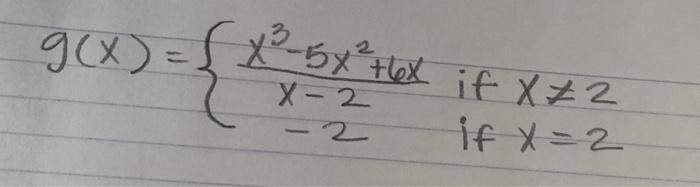 g(x) = { x³-5x²+6x / x-2 if x≠2
-2 if x=2